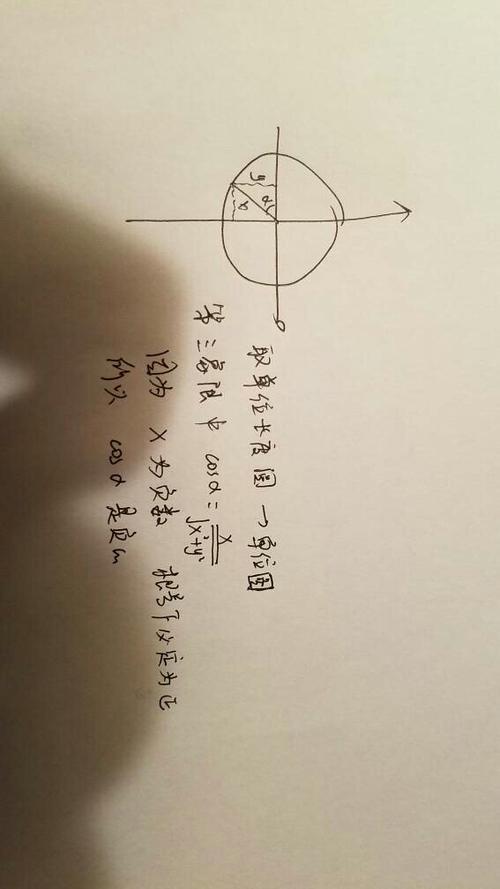 y
α
x
取单位长度圆 → 单位圆
第三象限中 cosα = x/√x²+y²
因为 x 为负数 根号下必定为正
所以 cosα 是负的